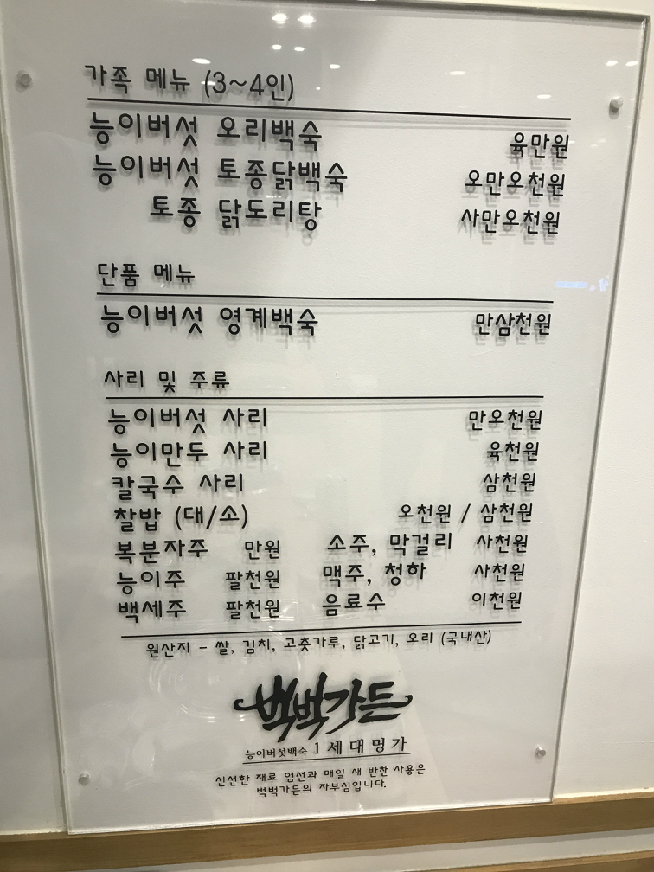 가족 메뉴 (3~4인)
능이버섯 오리백숙 육만원
능이버섯 토종닭백숙 오만오천원
토종 닭도리탕 사만오천원
단품 메뉴
능이버섯 영계백숙 만삼천원
사리 및 주류
능이버섯 사리 만오천원
능이만두 사리 육천원
칼국수 사리 삼천원
찰밥 (대/소) 오천원 / 삼천원
복분자주 만원 소주, 막걸리 사천원
능이주 팔천원 맥주, 청하 사천원
백세주 팔천원 음료수 이천원
원산지 - 쌀, 김치, 고춧가루, 닭고기, 오리 (국내산)
벅벅가든
능이버섯백숙 1세대명가
신선한 재료 엄선과 매일 새 반찬 사용은
벅벅가든의 자부심입니다.